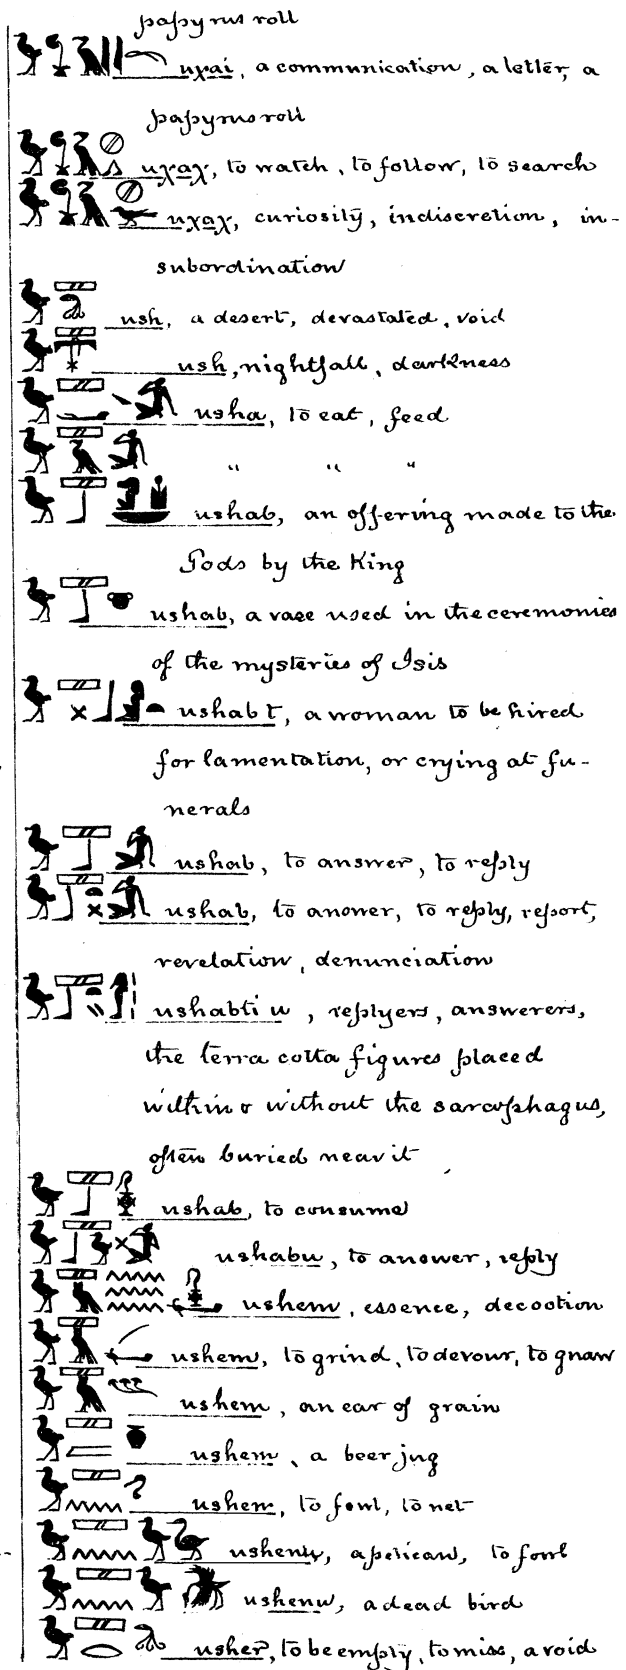 papyrus roll
uχai, a communication, a letter, a
papyrus roll
uχaχ, to watch, to follow, to search
uχaχ, curiosity, indiscretion, in-
subordination
ush, a desert, devastated, void
ush, nightfall, darkness
usha, to eat, feed
" " "
ushab, an offering made to the
Gods by the King
ushab, a vase used in the ceremonies
of the mysteries of Isis
ushabt, a woman to be hired
for lamentation, or crying at fu-
nerals
ushab, to answer, to reply
ushab, to answer, to reply, report,
revelation, denunciation
ushabtiu, replyers, answerers,
the terra cotta figures placed
within or without the sarcophagus,
often buried near it
ushab, to consume
ushabu, to answer, reply
ushem, essence, decoction
ushem, to grind, to devour, to gnaw
ushem, an ear of grain
ushem, a beer jug
to fowl, to net
ushenu, a pelican, to fowl
ushenu, a dead bird
usher, to be empty, to miss, a void